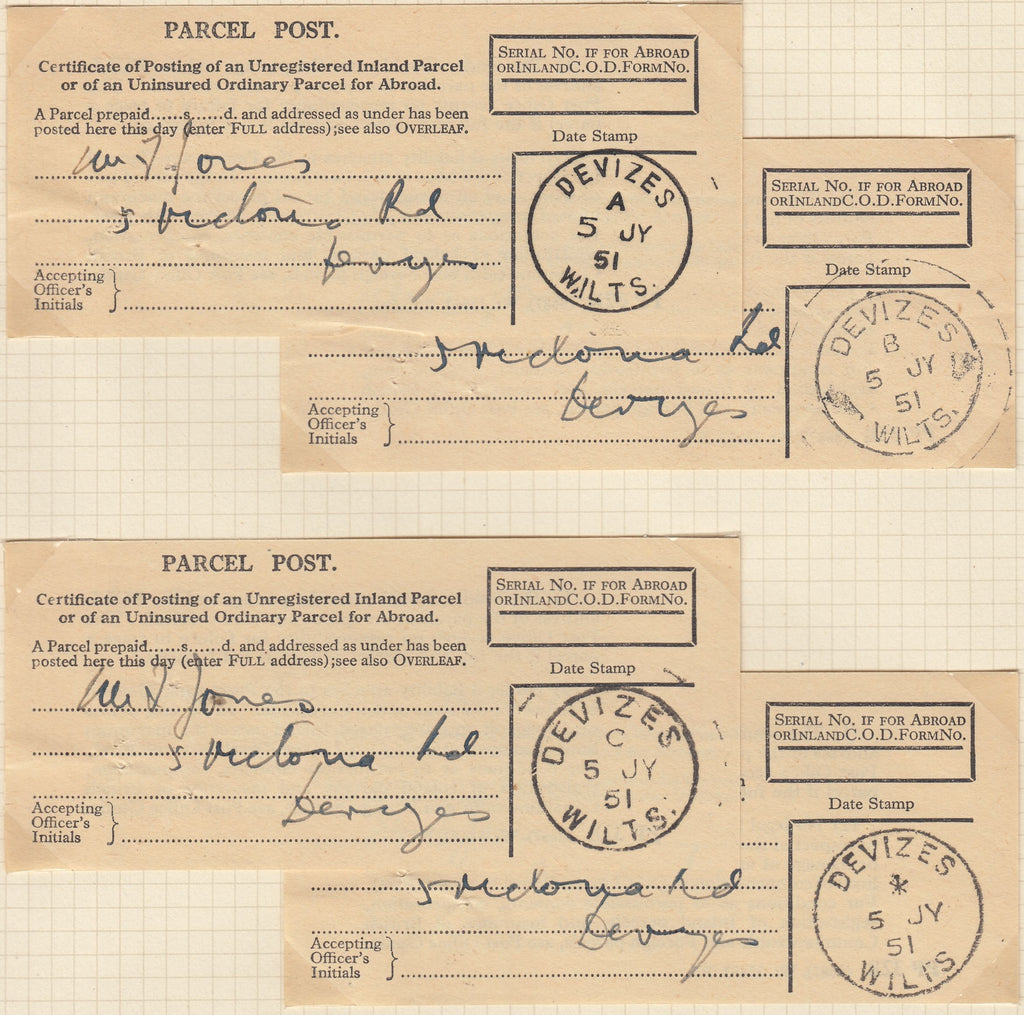 PARCEL POST.
Certificate of Posting of an Unregistered Inland Parcel
or of an Uninsured Ordinary Parcel for Abroad.
A Parcel prepaid......s......d. and addressed as under has been
posted here this day (enter FULL address);see also OVERLEAF.
Mr J Jones
5 Victoria Rd
Devizes
Accepting
Officer's
Initials
SERIAL NO. IF FOR ABROAD
OR INLAND C.O.D. FORM NO.
Date Stamp
DEVIZES
A
5 JY
51
WILTS.
SERIAL NO. IF FOR ABROAD
OR INLAND C.O.D. FORM NO.
Date Stamp
5 Victoria Rd
Devizes
Accepting
Officer's
Initials
DEVIZES
B
5 JY
51
WILTS.
PARCEL POST.
Certificate of Posting of an Unregistered Inland Parcel
or of an Uninsured Ordinary Parcel for Abroad.
A Parcel prepaid......s......d. and addressed as under has been
posted here this day (enter FULL address);see also OVERLEAF.
Mr J Jones
5 Victoria Rd
Devizes
Accepting
Officer's
Initials
SERIAL NO. IF FOR ABROAD
OR INLAND C.O.D. FORM NO.
Date Stamp
DEVIZES
C
5 JY
51
WILTS.
SERIAL NO. IF FOR ABROAD
OR INLAND C.O.D. FORM NO.
Date Stamp
5 Victoria Rd
Devizes
Accepting
Officer's
Initials
DEVIZES
*
5 JY
51
WILTS